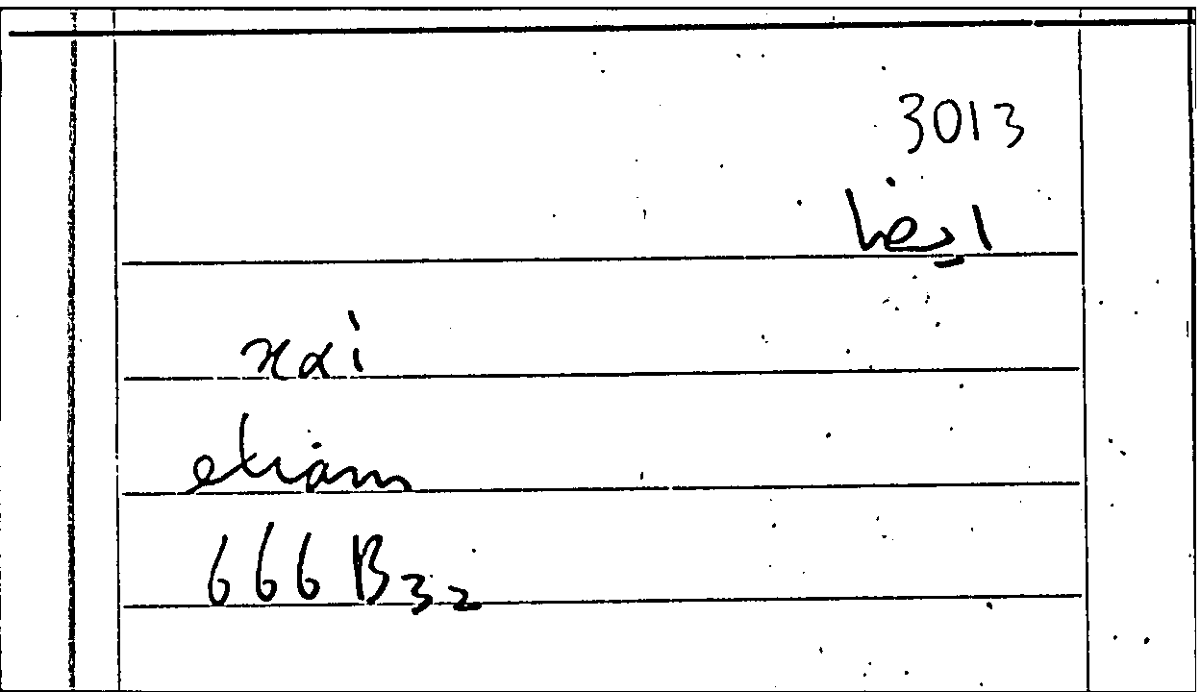 3013
ايضا
ϰαὶ
etiam
666 B 32